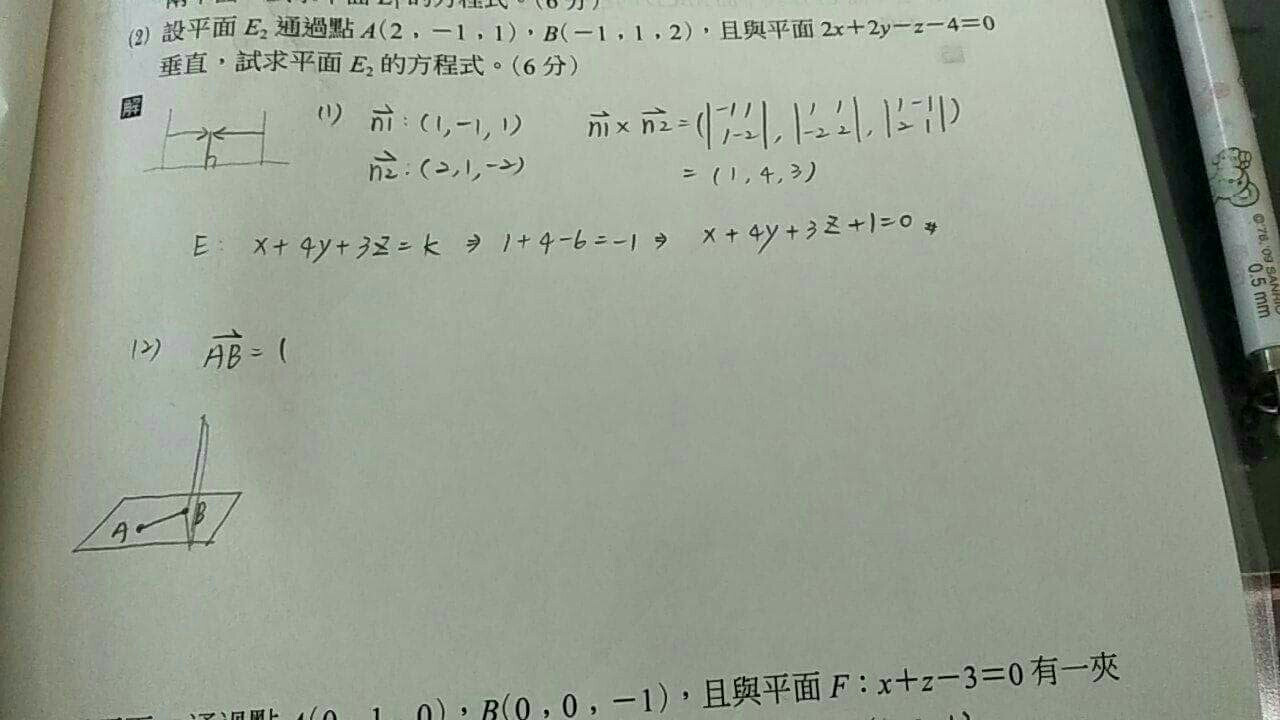 (2) 設平面 E₂ 通過點 A(2,-1,1),B(-1,1,2),且與平面 2x+2y-z-4=0
垂直,試求平面 E₂ 的方程式。(6 分)
解
(1) n1⃗ : (1,-1,1) n1⃗ × n2⃗ = (|-1 1; 1 -2|, |1 1; -2 2|, |1 -1; 2 1|)
n2⃗ : (2,1,-2) = (1,4,3)
E: x+4y+3z=k ⇒ 1+4-6=-1 ⇒ x+4y+3z+1=0 #
(2) AB⃗ = (
A B
©'76,'09 SANRIO
0.5 mm
B(0,0,-1),且與平面 F:x+z-3=0 有一夾